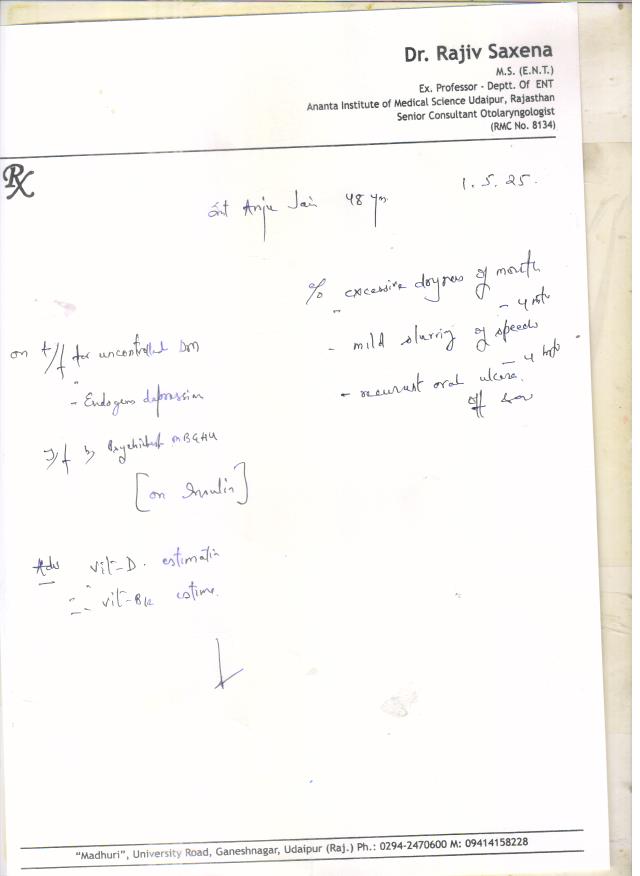 Dr. Rajiv Saxena
M.S. (E.N.T.)
Ex. Professor - Deptt. Of ENT
Ananta Institute of Medical Science Udaipur, Rajasthan
Senior Consultant Otolaryngologist
(RMC No. 8134)
Rx
1.5.25.
Smt Anju Jain 48 yrs
c/o excessive dryness of mouth
- 4 mths
- mild slurring of speech
- 4 mths
- recurrent oral ulcers.
off & on
on t/t for uncontrolled DM
- Endogens depression
by Psychiatrist
[on Insulin]
Adv Vit-D. estimatin
Vit-B12 estimn.
"Madhuri", University Road, Ganeshnagar, Udaipur (Raj.) Ph.: 0294-2470600 M: 09414158228